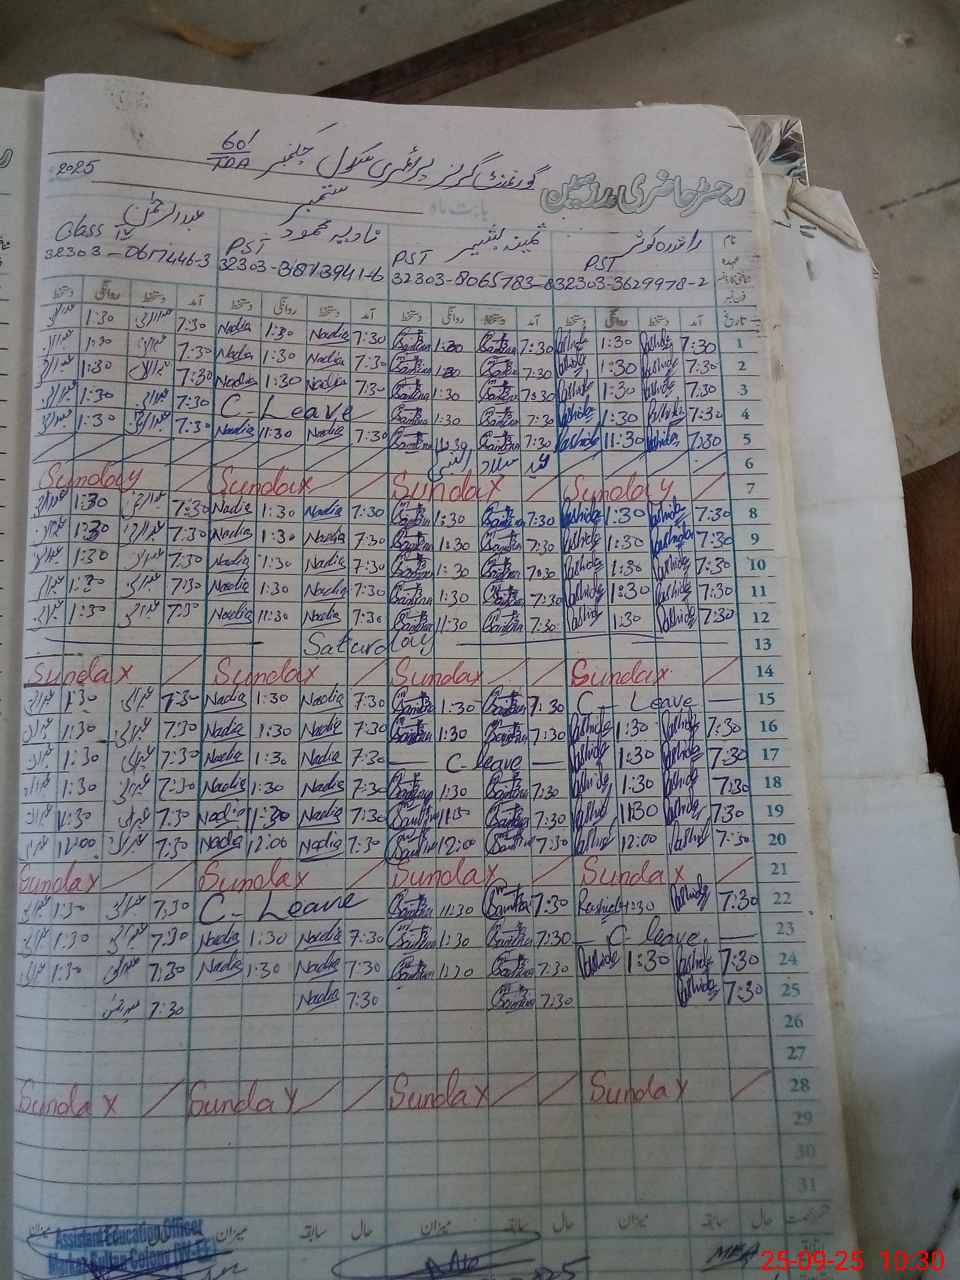 گورنمنٹ گرلز پرائمری سکول چکنمبر 601/TDA
2025
رجسٹر حاضری مدرسین
بابت ماہ ستمبر
نام راشدہ کوثر ثمینہ بشیر نادیہ محمود عبدالرحمٰن
عہدہ PST PST PST Class IV
32303-3629978-2
32303-8065783-8
32303-3873941-6
32303-0617446-3
تاریخ آمد دستخط روانگی دستخط آمد دستخط روانگی دستخط آمد دستخط روانگی دستخط آمد دستخط روانگی دستخط
1 7:30 Rashida 1:30 Rashida 7:30 Samina 1:30 Samina 7:30 Nadia 1:30 Nadia 7:30 1:30
2 7:30 Rashida 1:30 Rashida 7:30 Samina 1:30 Samina 7:30 Nadia 1:30 Nadia 7:30 1:30
3 7:30 Rashida 1:30 Rashida 7:30 Samina 1:30 Samina 7:30 Nadia 1:30 Nadia 7:30 1:30
4 7:30 Rashida 1:30 Rashida 7:30 Samina 1:30 Samina C-Leave 7:30 1:30
5 7:30 Rashida 11:30 Rashida 7:30 Samina 11:30 Samina 7:30 Nadia 11:30 Nadia 7:30 1:30
6 عید میلاد النبی
7 Sunday Sunday Sunday Sunday
8 7:30 Rashida 1:30 Rashida 7:30 Samina 1:30 Samina 7:30 Nadia 1:30 Nadia 7:30 1:30
9 7:30 Rashida 1:30 Rashida 7:30 Samina 1:30 Samina 7:30 Nadia 1:30 Nadia 7:30 1:30
10 7:30 Rashida 1:30 Rashida 7:30 Samina 1:30 Samina 7:30 Nadia 1:30 Nadia 7:30 1:30
11 7:30 Rashida 1:30 Rashida 7:30 Samina 1:30 Samina 7:30 Nadia 1:30 Nadia 7:30 1:30
12 7:30 Rashida 1:30 Rashida 7:30 Samina 11:30 Samina 7:30 Nadia 11:30 Nadia 7:30 1:30
13 Saturday
14 Sunday Sunday Sunday Sunday
15 C-Leave 7:30 Samina 1:30 Samina 7:30 Nadia 1:30 Nadia 7:30 1:30
16 7:30 Rashida 1:30 Rashida 7:30 Samina 1:30 Samina 7:30 Nadia 1:30 Nadia 7:30 1:30
17 7:30 Rashida 1:30 Rashida C-leave 7:30 Nadia 1:30 Nadia 7:30 1:30
18 7:30 Rashida 1:30 Rashida 7:30 Samina 1:30 Samina 7:30 Nadia 1:30 Nadia 7:30 1:30
19 7:30 Rashida 11:30 Rashida 7:30 Samina 11:30 Samina 7:30 Nadia 11:30 Nadia 7:30 11:30
20 7:30 Rashida 12:00 Rashida 7:30 Samina 12:00 Samina 7:30 Nadia 12:00 Nadia 7:30 12:00
21 Sunday Sunday Sunday Sunday
22 7:30 Rashida 1:30 Rashida 7:30 Samina 11:30 Samina C-Leave 7:30 1:30
23 C-leave 7:30 Samina 1:30 Samina 7:30 Nadia 1:30 Nadia 7:30 1:30
24 7:30 Rashida 1:30 Rashida 7:30 Samina 1:30 Samina 7:30 Nadia 1:30 Nadia 7:30 1:30
25 7:30 Rashida 7:30 Samina 7:30 Nadia 7:30
26
27
28 Sunday Sunday Sunday Sunday
29
30
31
حال سابقہ میزان حال سابقہ میزان حال سابقہ میزان
Assistant Education Officer
Markaz Sultan Colony (W-EE)
25-09-25 10:30